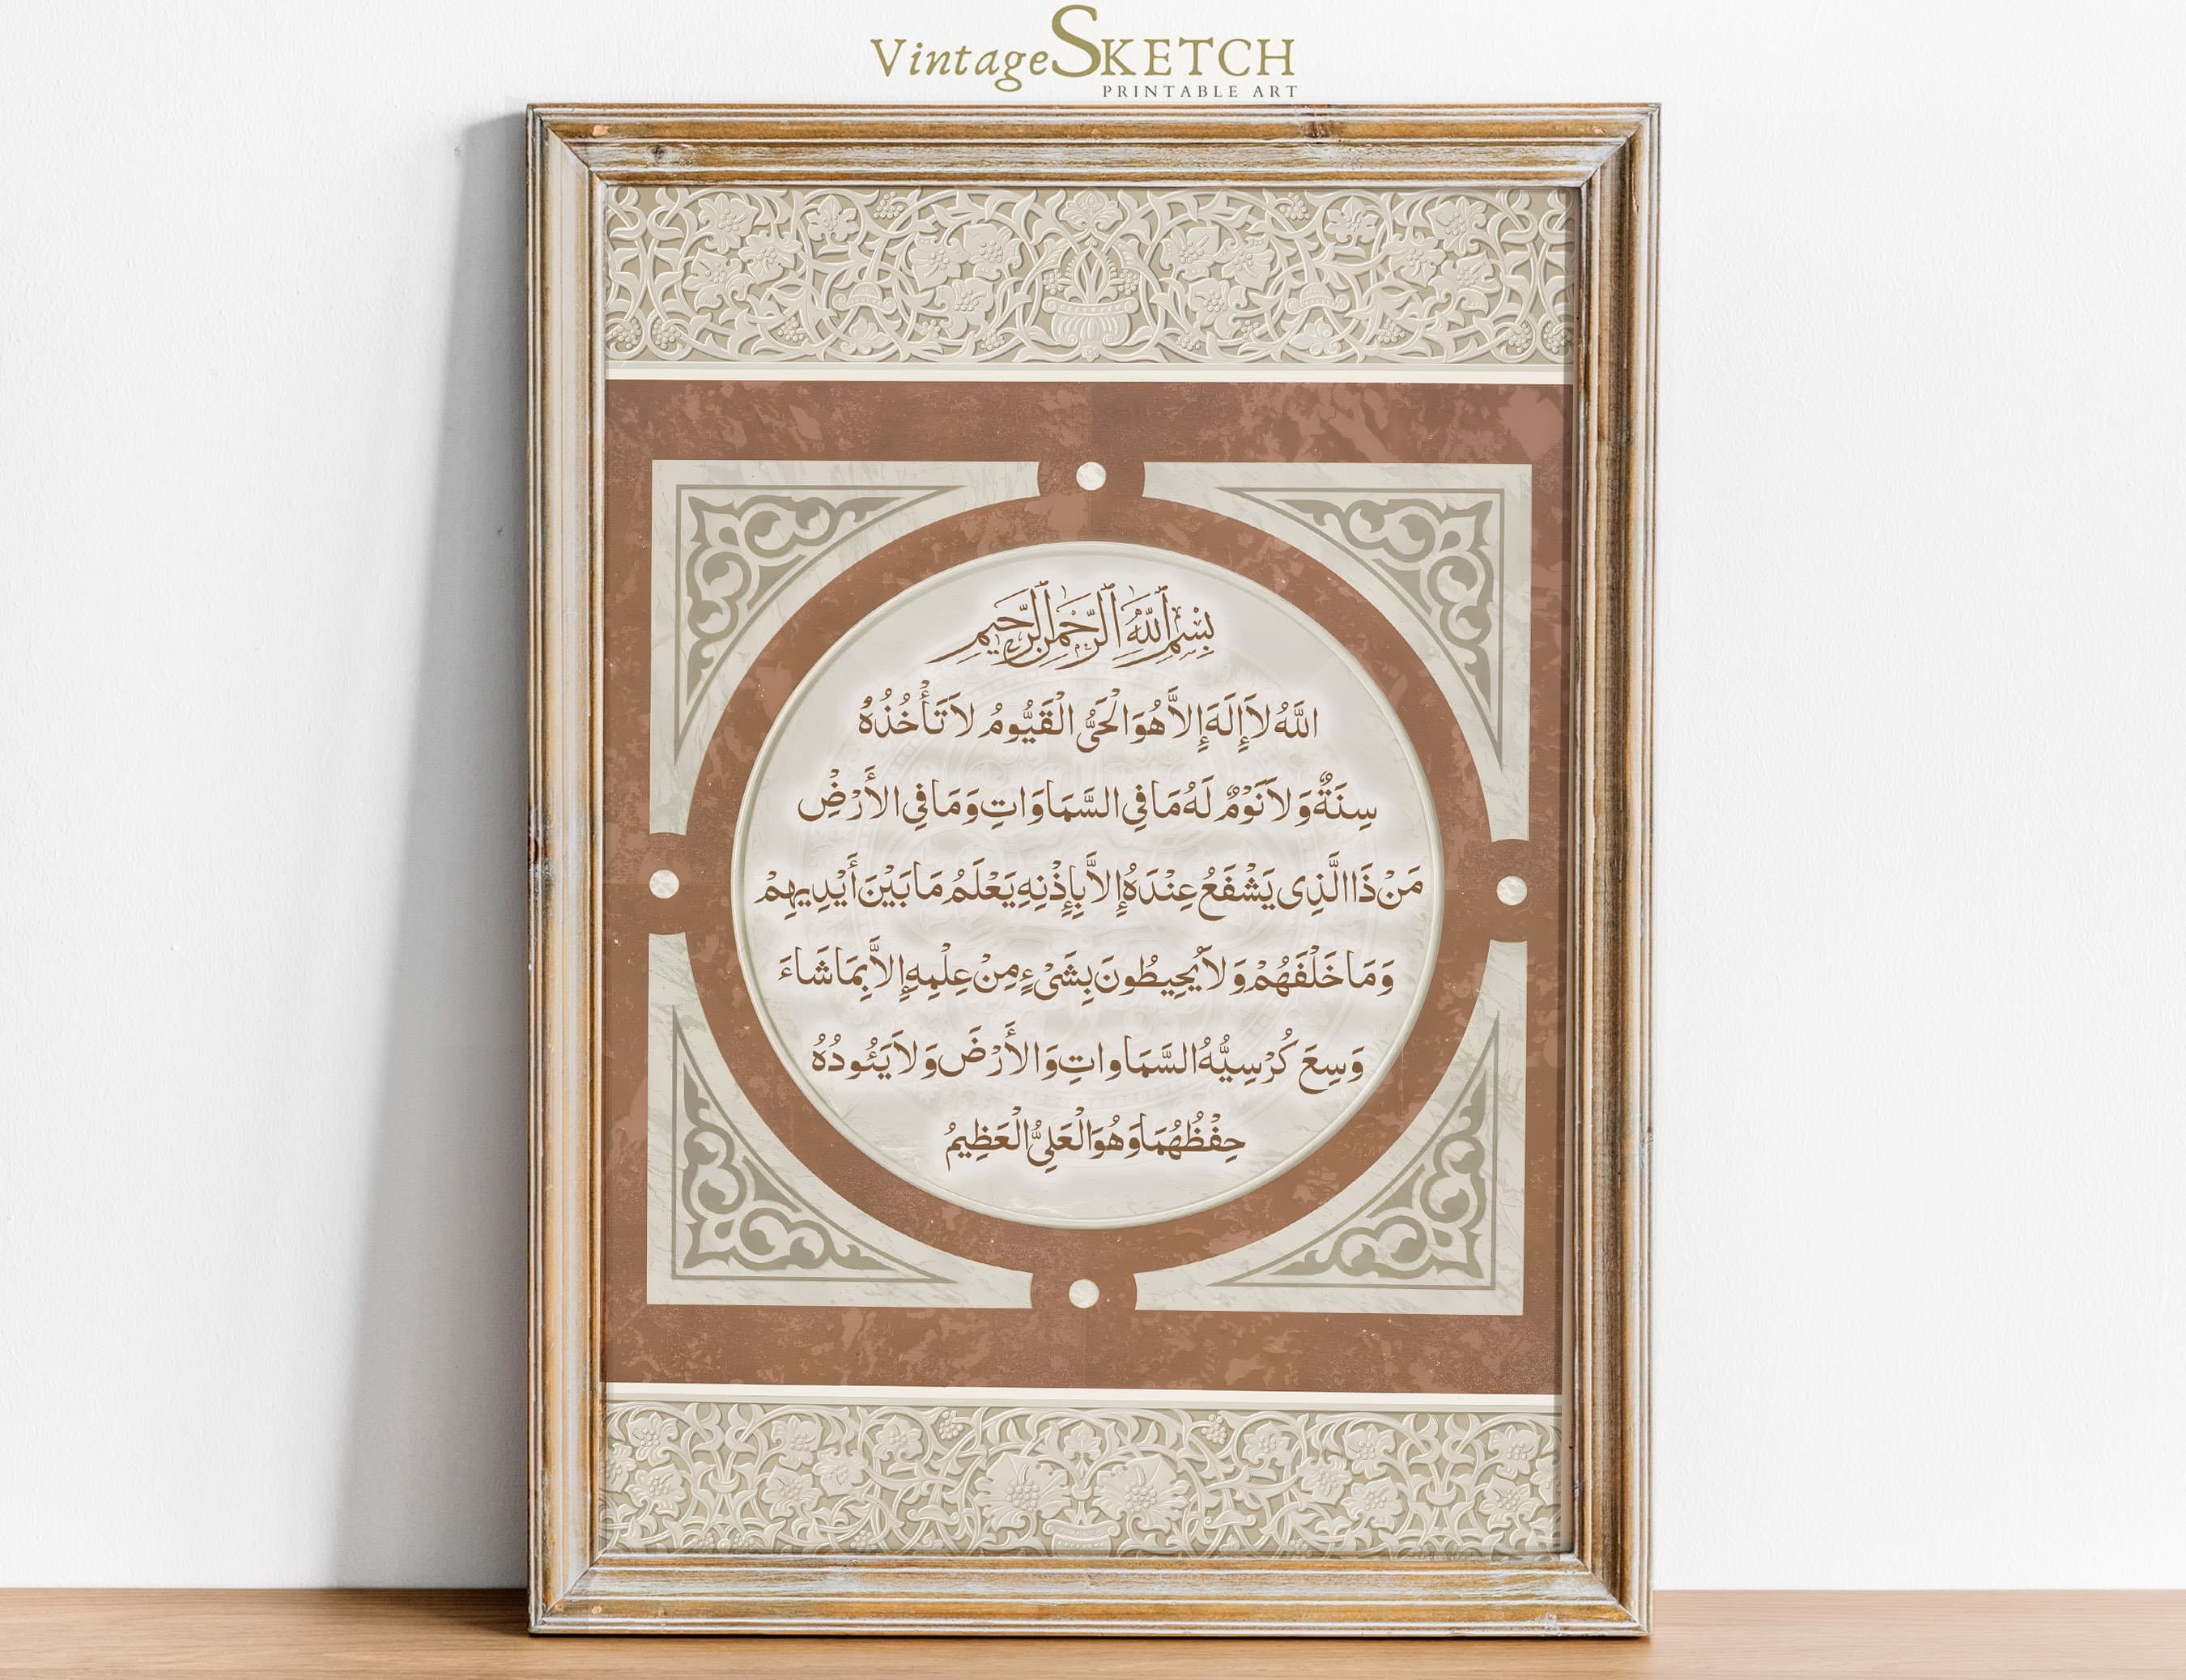 VintageSKETCH
PRINTABLE ART
بِسْمِ ٱللَّهِ ٱلرَّحْمَٰنِ ٱلرَّحِيمِ
اللَّهُ لاَ إِلَهَ إِلاَّ هُوَ الْحَيُّ الْقَيُّومُ لاَ تَأْخُذُهُ
سِنَةٌ وَلاَ نَوْمٌ لَهُ مَا فِي السَّمَاوَاتِ وَمَا فِي الأَرْضِ
مَنْ ذَا الَّذِى يَشْفَعُ عِنْدَهُ إِلاَّ بِإِذْنِهِ يَعْلَمُ مَا بَيْنَ أَيْدِيهِمْ
وَمَا خَلْفَهُمْ وَلاَ يُحِيطُونَ بِشَىْءٍ مِنْ عِلْمِهِ إِلاَّ بِمَا شَاءَ
وَسِعَ كُرْسِيُّهُ السَّمَاواتِ وَالأَرْضَ وَلاَ يَئُودُهُ
حِفْظُهُمَا وَهُوَ الْعَلِيُّ الْعَظِيمُ